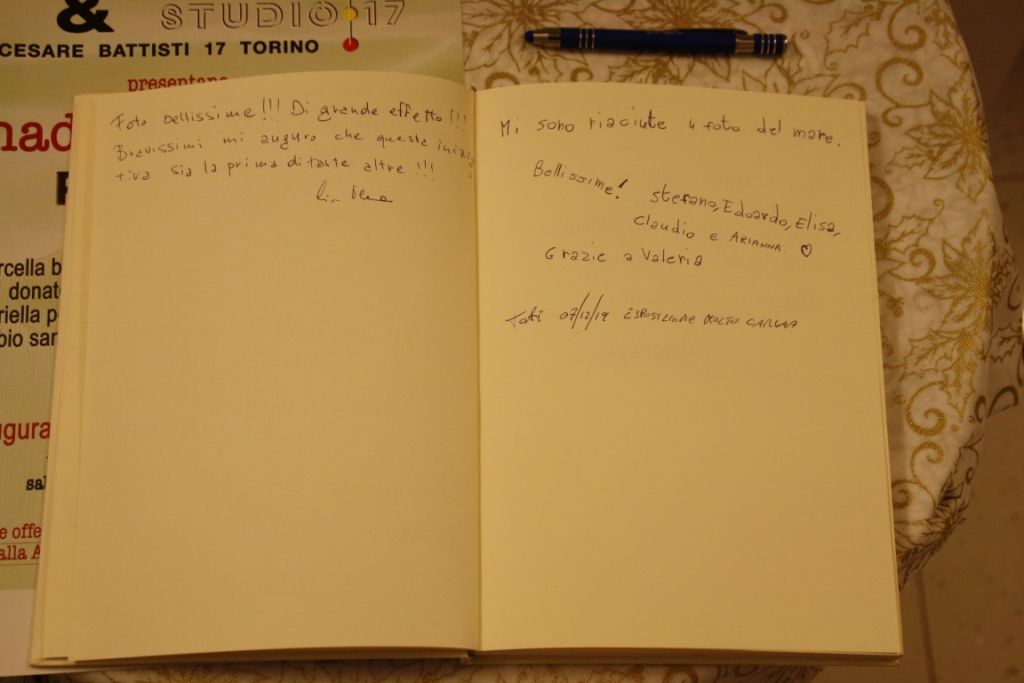 &
STUDIO 17
CESARE BATTISTI 17 TORINO
presentano
nad
rcella b
donat
riella p
bio sar
ugura
sal
e offe
alla A
Foto bellissime!!! Di grande effetto!!!
Bravissimi mi auguro che questa inizia
tiva sia la prima di tante altre!!!
Mi sono riaciute 4 foto del mare.
Bellissime! Stefano, Edoardo, Elisa,
Claudio e ARIANNA. ♡
Grazie a Valeria
07/12/19 ESPOSIZIONE MOLTO CARINA